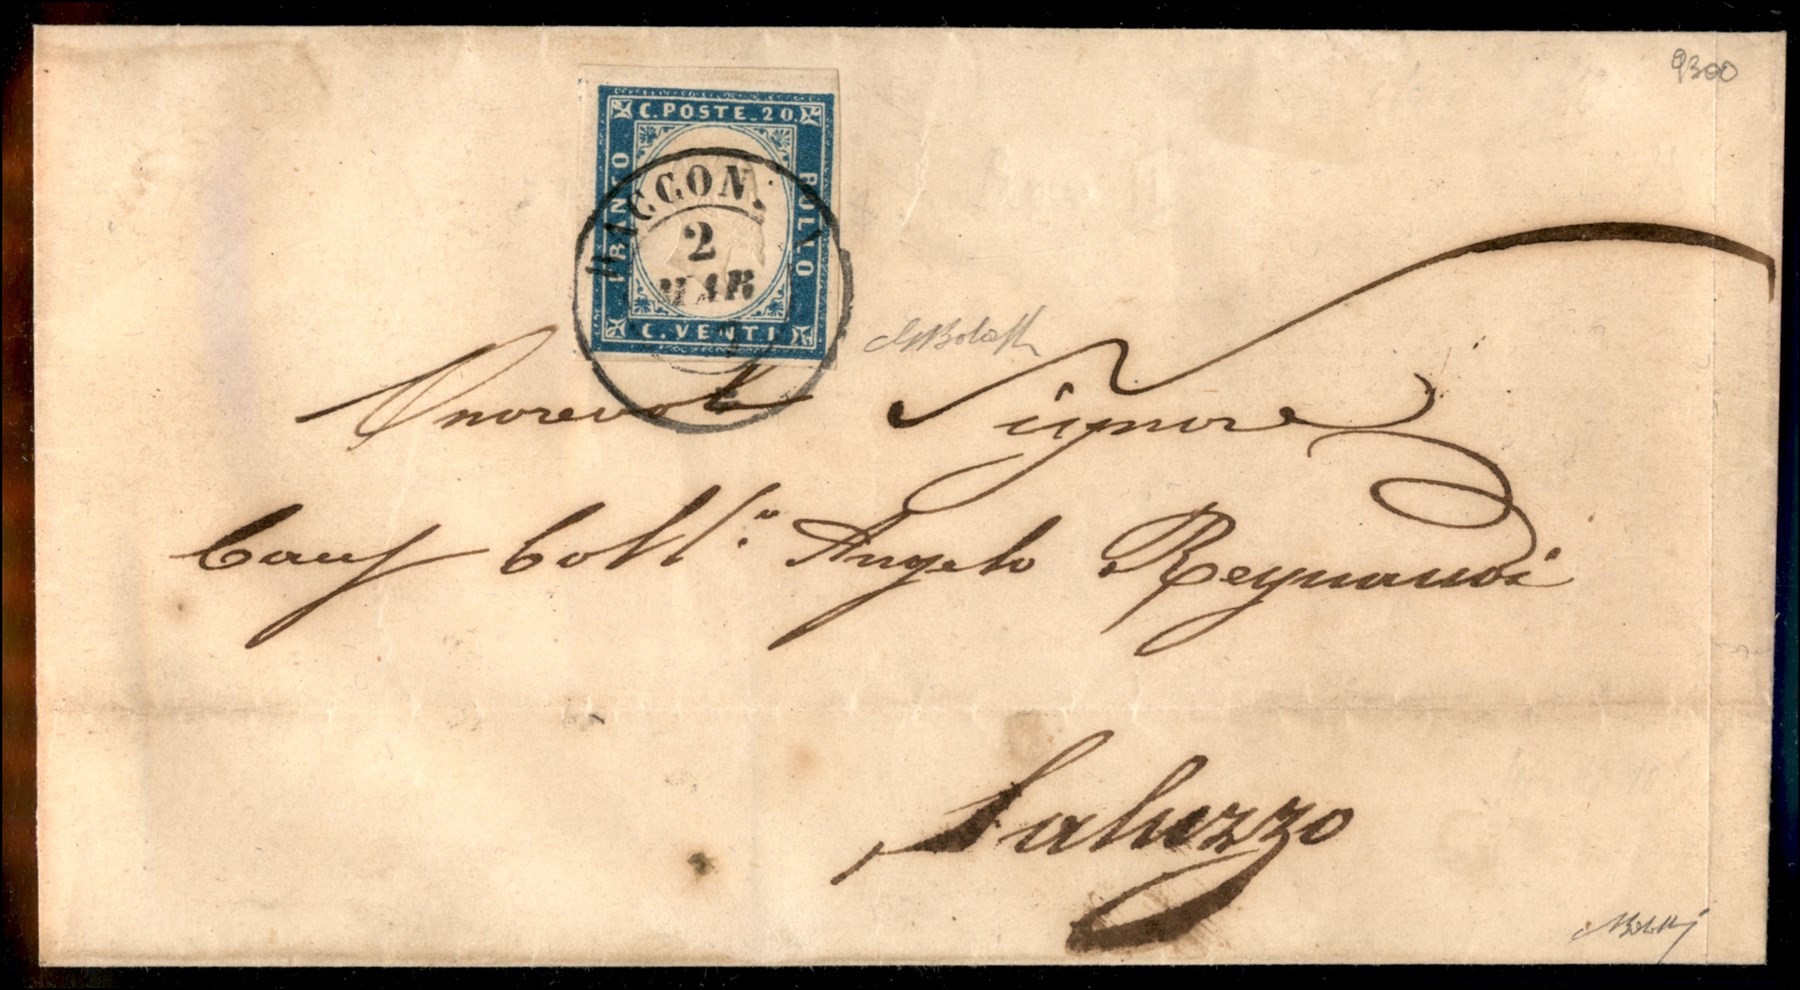 9300
C. POSTE. 20.
FRANCO
BOLLO
C. VENTI
RACCON.
2
MAR
Onorevole Signore
Caus Coll.º Angelo Reynaudi
Saluzzo